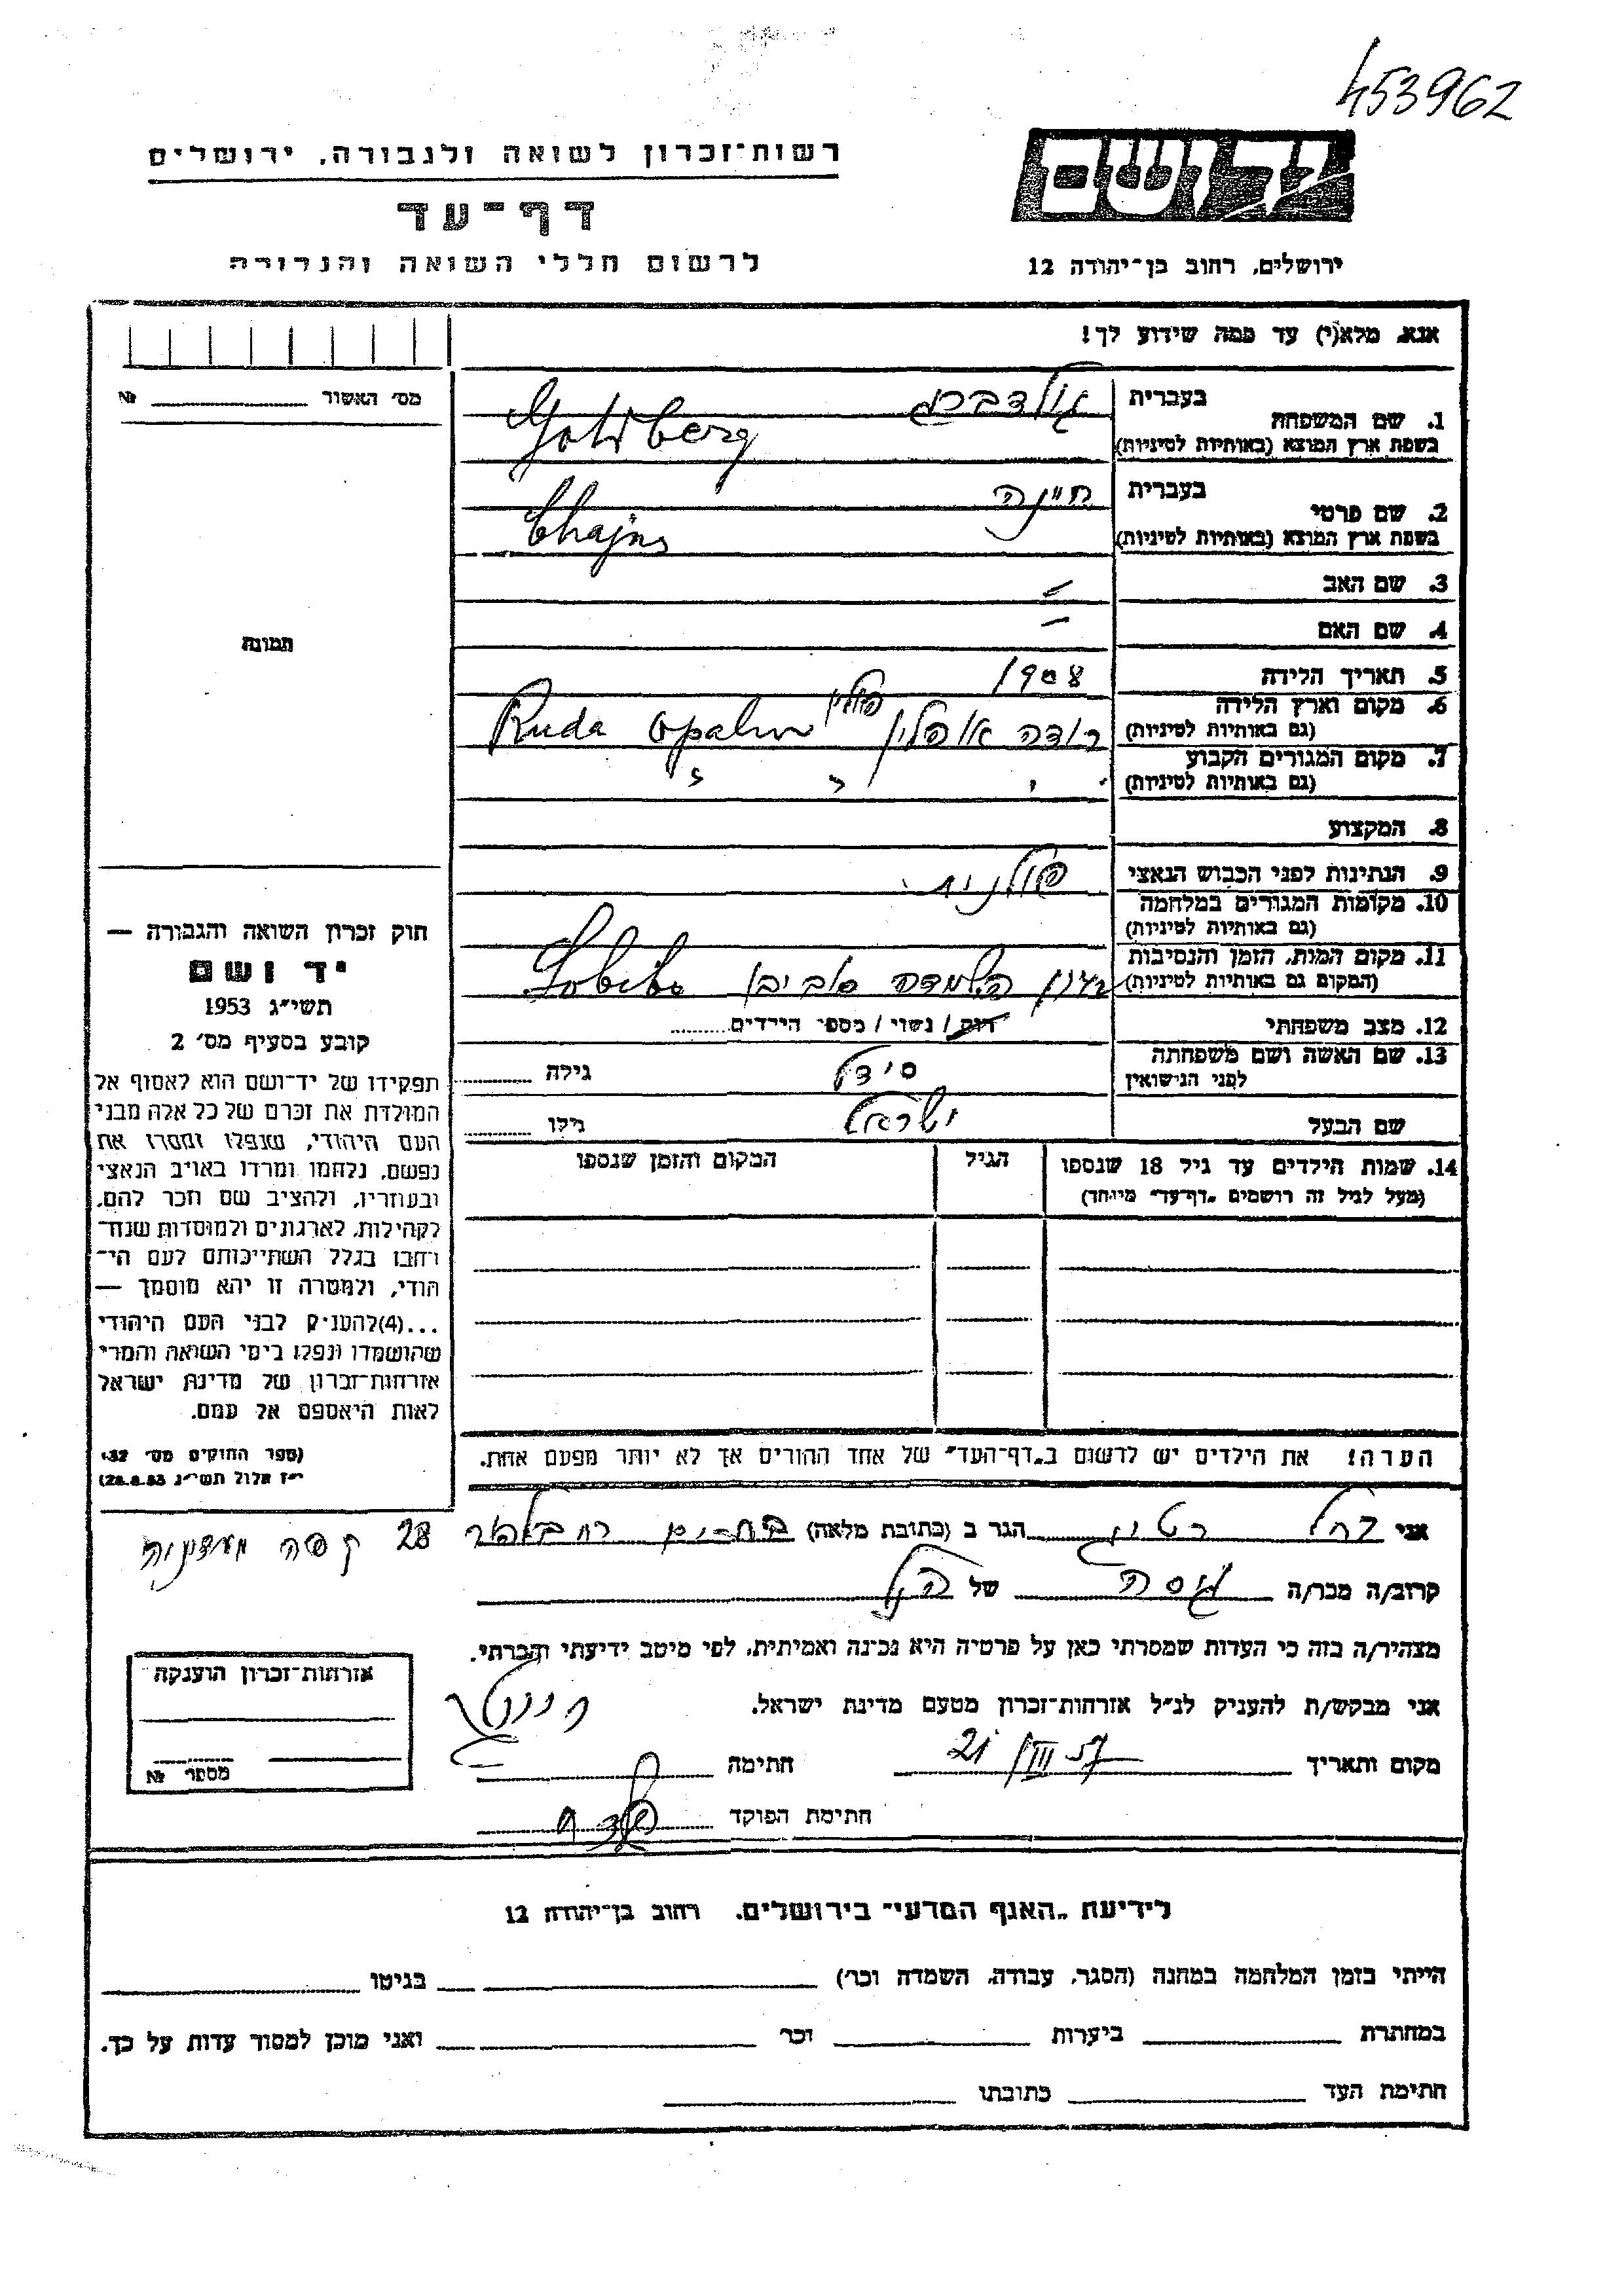 453962
יד ושם
ירושלים, רחוב בן-יהודה 12
רשות-זכרון לשואה ולגבורה, ירושלים
דף-עד
לרשום חללי השואה והגבורה
אנא, מלא(י) עד כמה שידוע לך!
מס׳ האשור № 
1. שם המשפחה בעברית גולדברג
בשפת ארץ המוצא (באותיות לטיניות) Goldberg
2. שם פרטי בעברית חיינה
בשפת ארץ המוצא (באותיות לטיניות) Chajna
3. שם האב –
4. שם האם –
5. תאריך הלידה 1908
6. מקום וארץ הלידה (גם באותיות לטיניות) רודה אופלין פולין Ruda Opalin
7. מקום המגורים הקבוע (גם באותיות לטיניות) " " " "
8. המקצוע
9. הנתינות לפני הכבוש הנאצי פולנית
10. מקומות המגורים במלחמה (גם באותיות לטיניות)
11. מקום המות, הזמן והנסיבות (המקום גם באותיות לטיניות) השמדה סוביבור Sobibor
12. מצב משפחתי רווק / נשוי / מספר הילדים
13. שם האשה ושם משפחתה לפני הנישואין סידל גילה
שם הבעל ישראל גילו
14. שמות הילדים עד גיל 18 שנספו הגיל המקום והזמן שנספו
(מעל לגיל זה רושמים „דף-עד" מיוחד)
תמונה
חוק זכרון השואה והגבורה —
יד ושם
תשי״ג 1953
קובע בסעיף מס׳ 2
תפקידו של יד-ושם הוא לאסוף אל
המולדת את זכרם של כל אלה מבני
העם היהודי, שנפלו ומסרו את
נפשם, נלחמו ומרדו באויב הנאצי
ובעוזריו, ולהציב שם וזכר להם,
לקהילות, לארגונים ולמוסדות שנח-
רבו בגלל השתייכותם לעם הי-
הודי, ולמטרה זו יהא מוסמך —
...(4)להעניק לבני העם היהודי
שהושמדו ונפלו בימי השואה והמרי
אזרחות-זכרון של מדינת ישראל
לאות היאספם אל עמם.
(ספר החוקים מס׳ 132
י״ז אלול תשי״ג 28.8.53)
הערה! את הילדים יש לרשום ב„דף-העד" של אחד ההורים אך לא יותר מפעם אחת.
אני רחל הגר ב (כתובת מלאה) 28
קרוב/ה מכר/ה גיסה של הנ״ל
מצהיר/ה בזה כי העדות שמסרתי כאן על פרטיה היא נכונה ואמיתית, לפי מיטב ידיעתי והכרתי.
אני מבקש/ת להעניק לנ״ל אזרחות-זכרון מטעם מדינת ישראל.
מקום ותאריך 21/III 57 חתימה
חתימת הפוקד
אזרחות-זכרון הוענקה
מספר №
לידיעת „האגף המדעי" בירושלים, רחוב בן-יהודה 12
הייתי בזמן המלחמה במחנה (הסגר, עבודה, השמדה וכו׳) בגיטו
במחתרת ביערות וכו׳ ואני מוכן למסור עדות על כך.
חתימת העד כתובתו